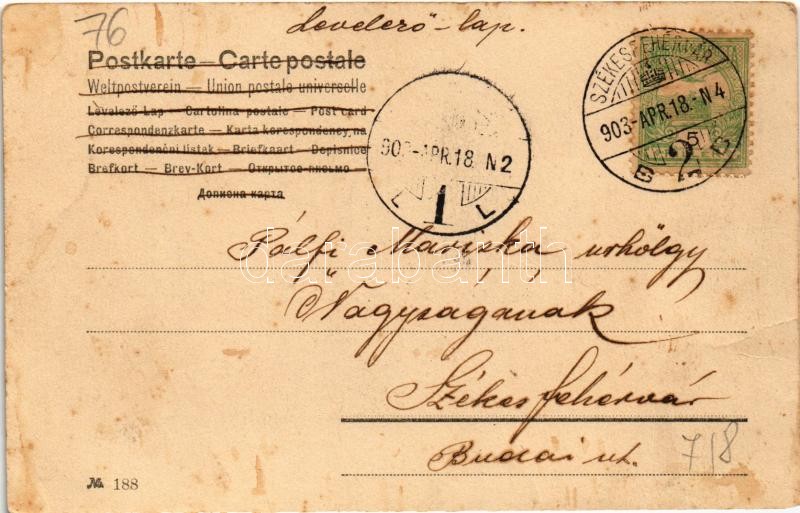 76
Levelező-lap.
Postkarte – Carte postale
Weltpostverein – Union postale universelle
Levelező Lap – Cartolina postale – Post card
Correspondenzkarte – Karta korespondencyjna
Korespondenční lístek – Briefkaart – Dopisnice
Brefkort – Brev-Kort – Открытое письмо
Дописна карта
SZÉKESFEHÉRVÁR
903-APR.18.-N4
5
2
903-APR.18. N2
1
L L
Pálfi Mariska urhölgy
Ő Nagyságának
Székesfehérvár
Budai ut.
7/8
№ 188
darabanth